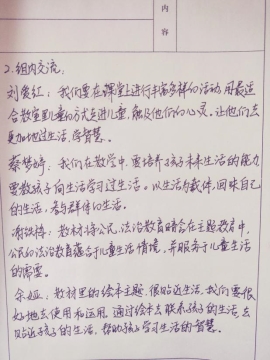 内
容
2.组内交流:
刘爱红:我们要在课堂上进行丰富多样的活动,用最适
合教室里儿童的方式走进儿童,触及他们的心灵。让他们去
更加地过生活,学智慧。
蔡梦婷:我们在教学中,要培养孩子未来生活的能力
要教孩子向生活学习过生活。以生活为载体,回味自己
的生活,参与群体的生活。
谢轶博:教材将公民,法治教育暗含在主题教育中,
公民的法治教育蕴含于儿童生活情境,并服务于儿童生活
的需要。
余娅:教材里的绘本主题,很贴近生活,我们要很
好地去使用和运用,通过绘本去联系孩子的生活,去
贴近孩子的生活,帮助孩子学习生活的智慧。